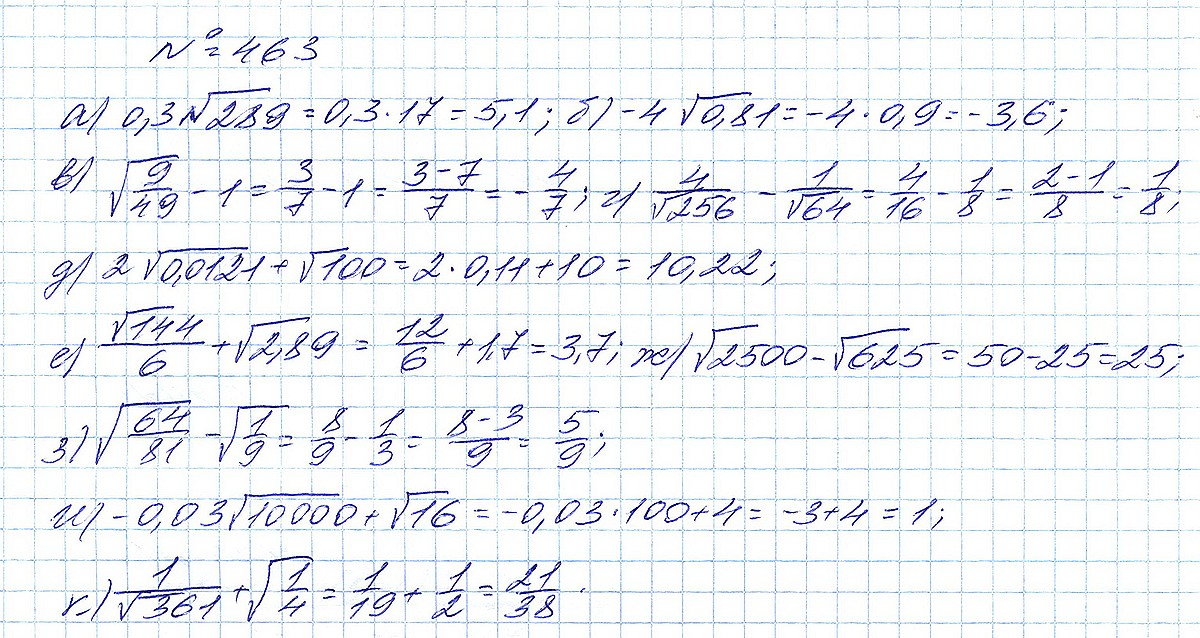 № 463
а) 0,3√289 = 0,3·17 = 5,1; б) -4√0,81 = -4·0,9 = -3,6;
в) √(9/49) - 1 = 3/7 - 1 = (3-7)/7 = -4/7; г) 4/√256 - 1/√64 = 4/16 - 1/8 = (2-1)/8 = 1/8;
д) 2√0,0121 + √100 = 2·0,11 + 10 = 10,22;
е) √144/6 + √2,89 = 12/6 + 1,7 = 3,7; ж) √2500 - √625 = 50 - 25 = 25;
з) √(64/81) - √(1/9) = 8/9 - 1/3 = (8-3)/9 = 5/9;
и) -0,03√10000 + √16 = -0,03·100 + 4 = -3 + 4 = 1;
к) 1/√361 + √(1/4) = 1/19 + 1/2 = 21/38.